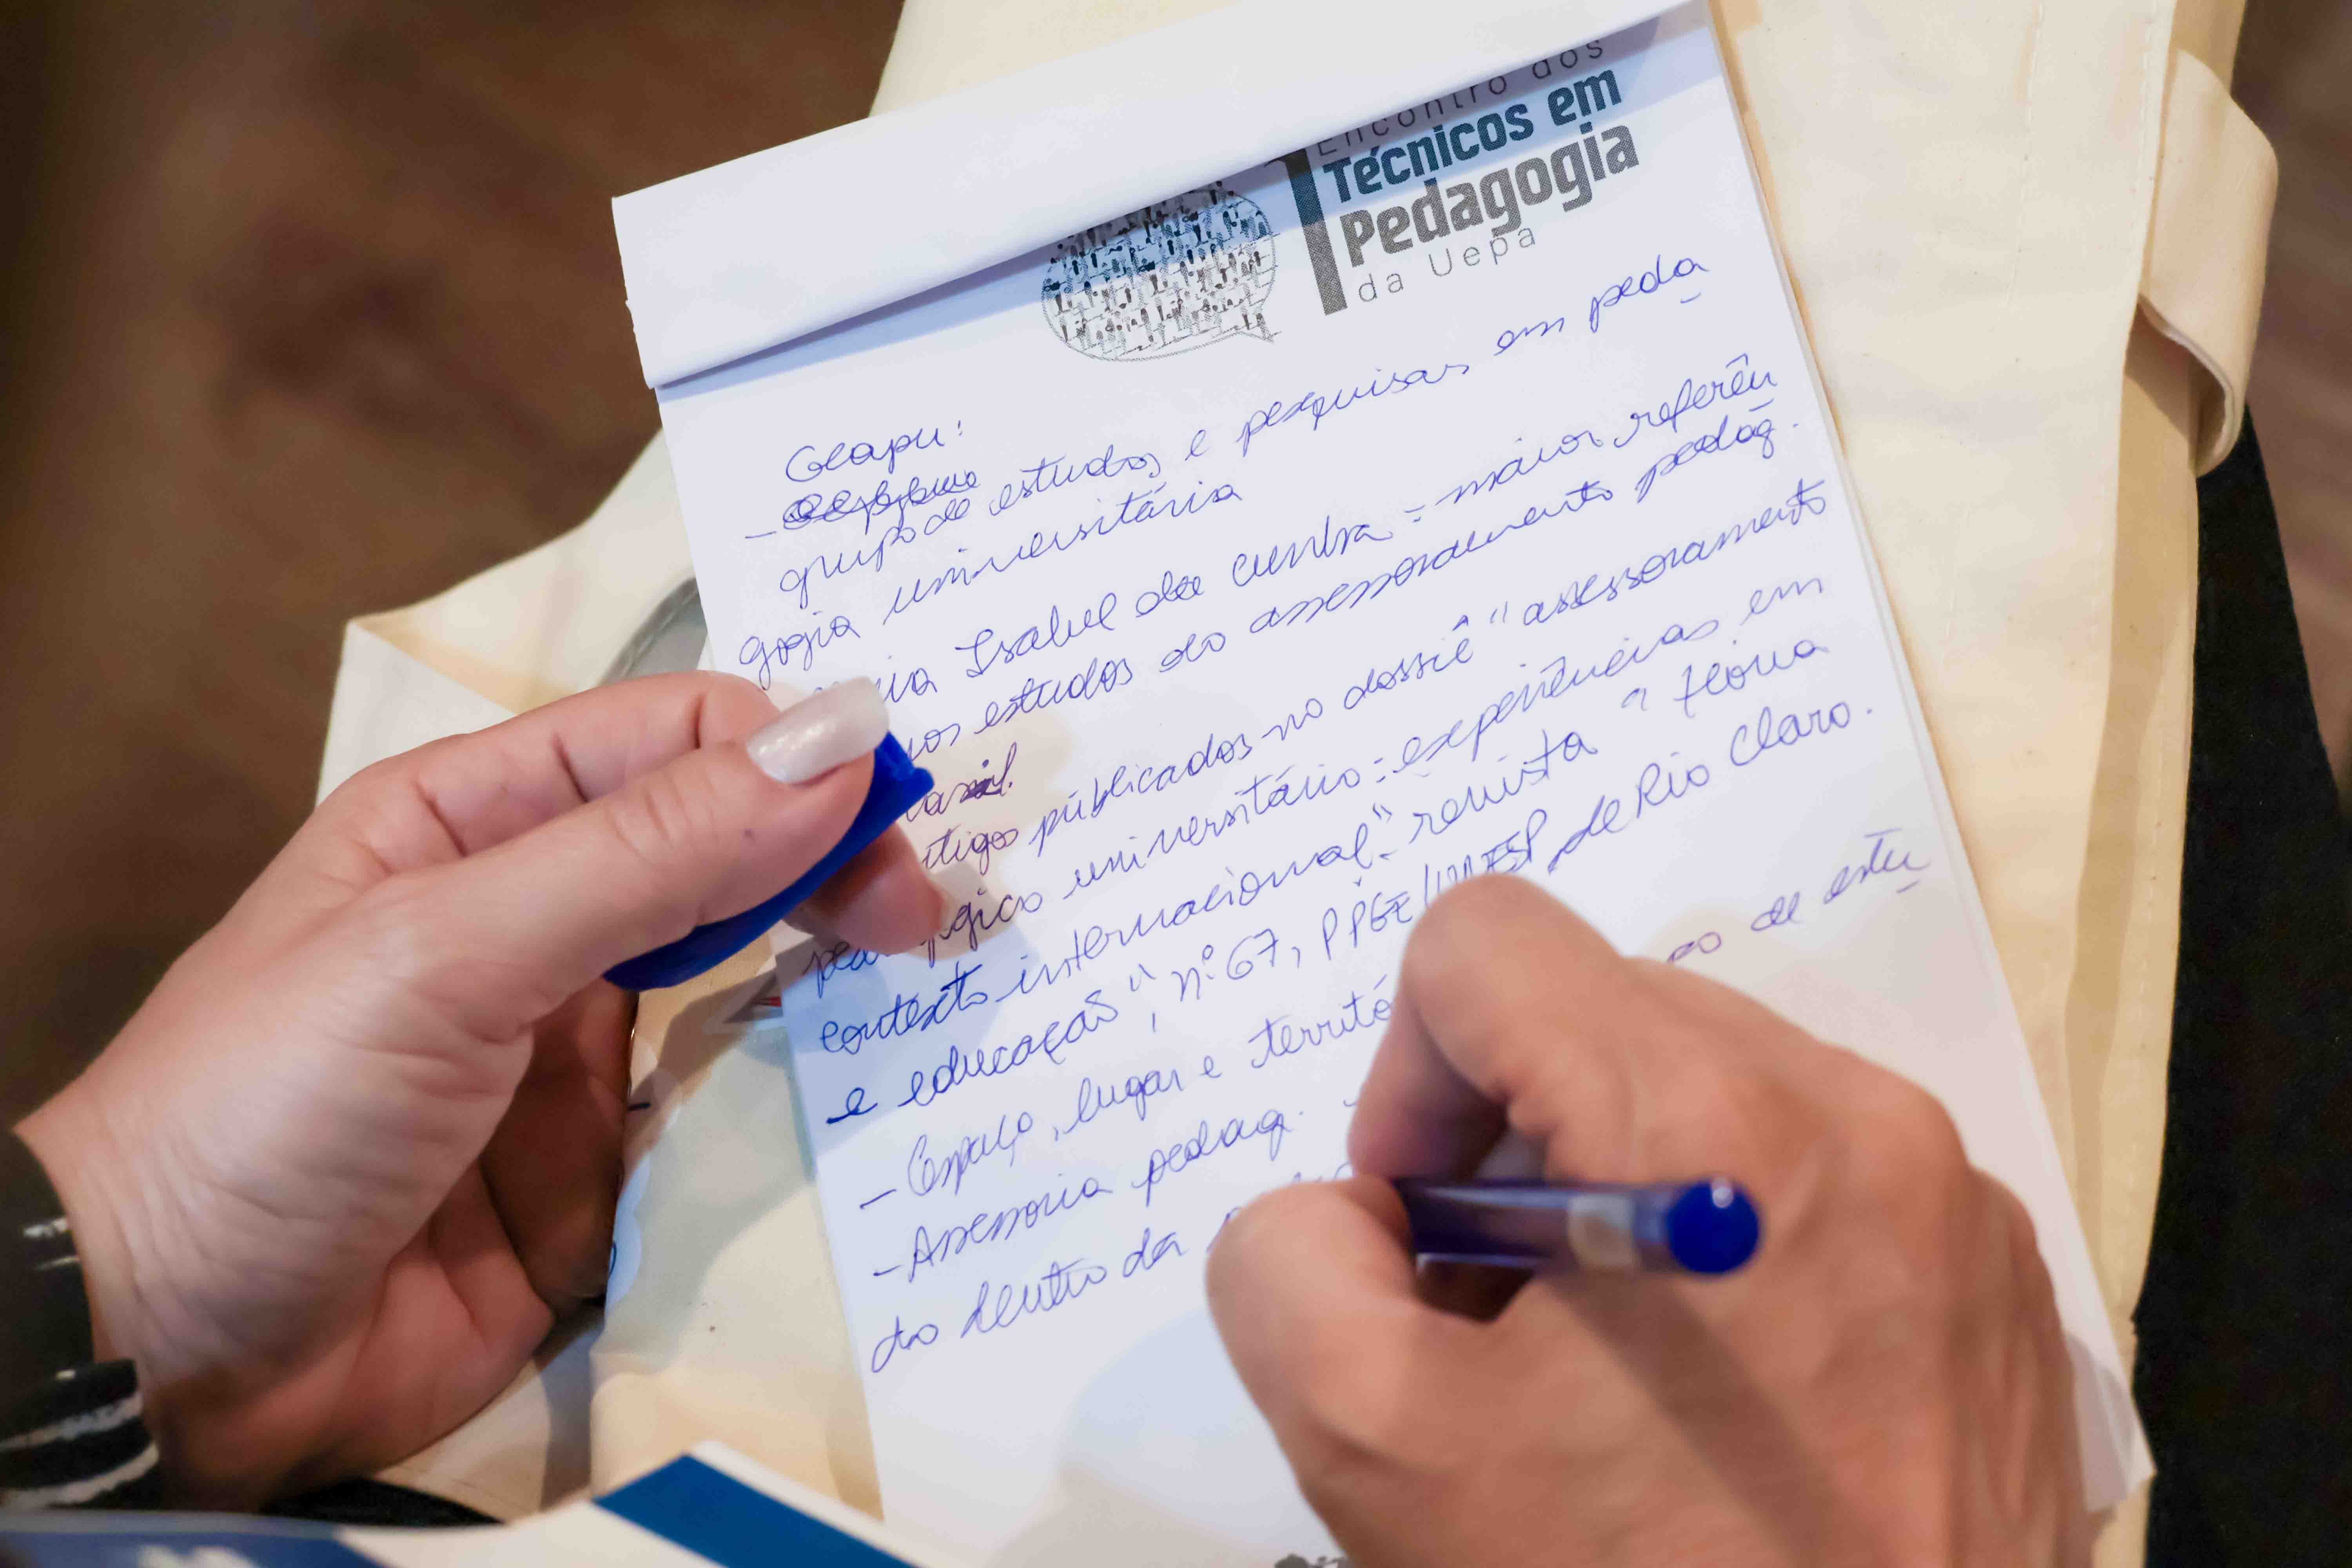 Encontro dos
Técnicos em
Pedagogia
da Uepa
Geapu:
grupo de estudos e pesquisas em peda
gogia universitária
Isabel da Cunha - maior referên
nos estudos do assessoramento pedag.
publicados no dossiê "assessoramento
universitário: experiências em
contexto internacional" - revista "teoria
e educação", nº 67, PPGE/UNESP de Rio Claro.
- Espaço, lugar e territó
- Assessoria pedag. de estu
do dentro da